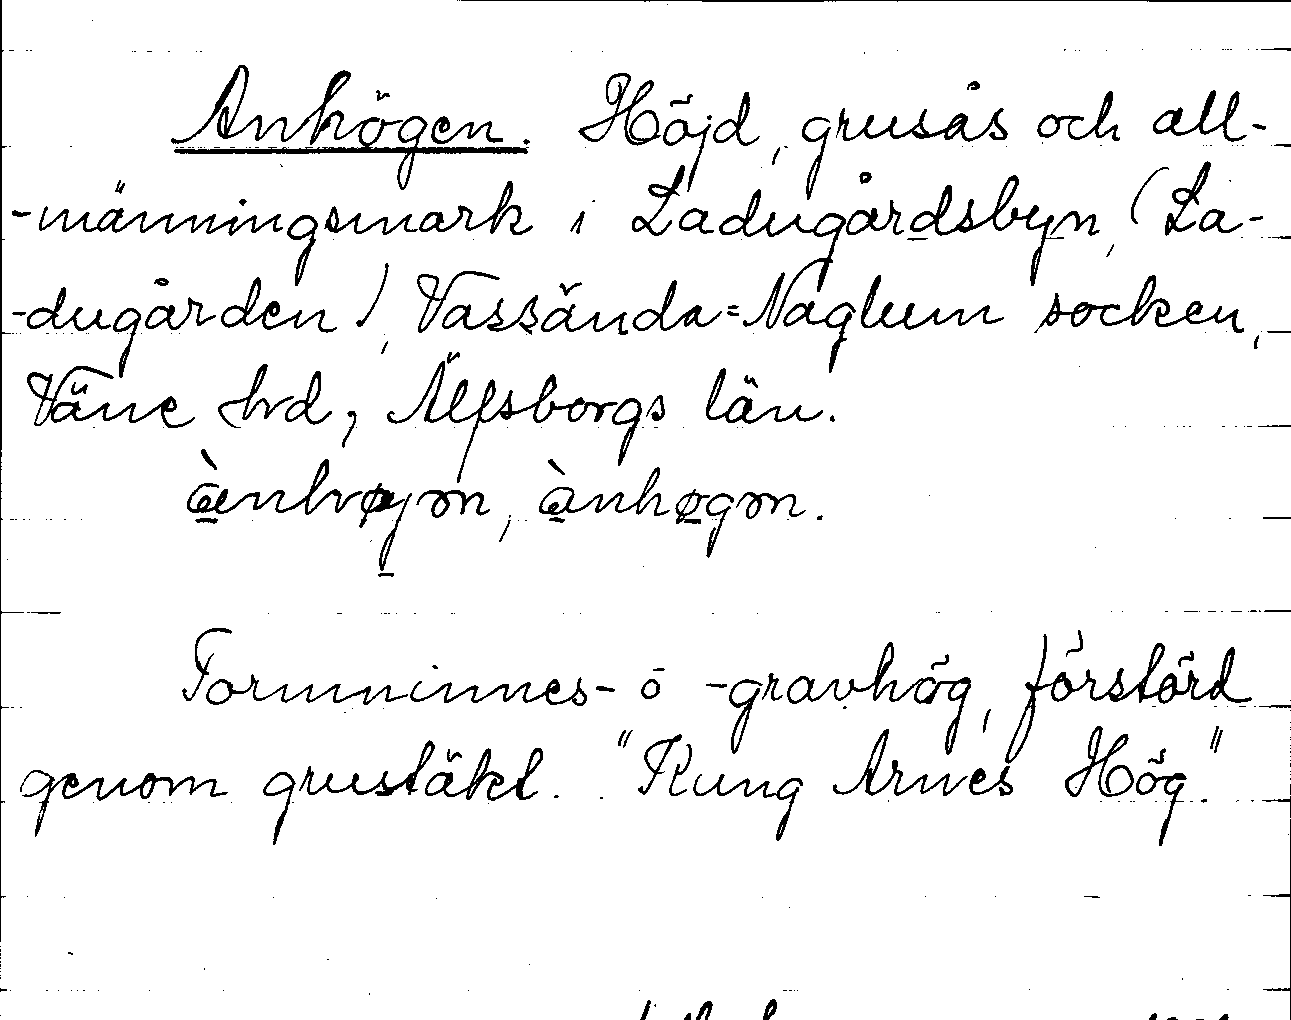 Anhögen. Höjd, grusås och all-
-männingsmark i Ladugårdsbyn, (La-
-dugården), Vassända=Naglum socken,
Väne hrd, Älfsborgs län.
ànhøgon, ànhøgon.
Fornminnes- o -gravhög, förstörd
genom grustäkt. "Kung Arnes Hög."